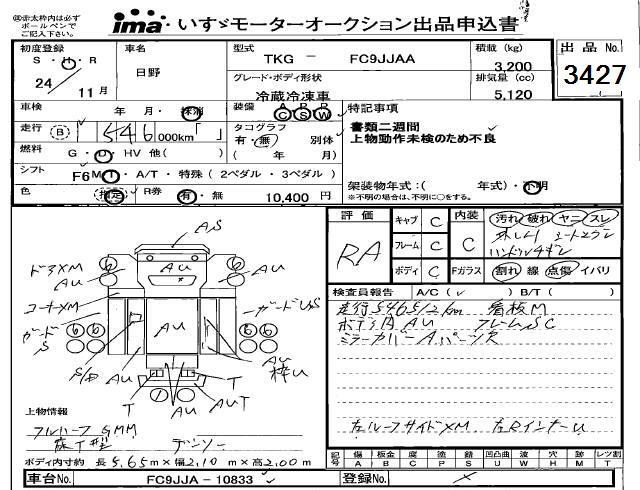 ㊟赤太枠内は必ず
ボールペンで
ご記入下さい。
ima いすゞモーターオークション出品申込書
初度登録 車名 型式 積載 (kg) 出品No.
S・H・R 日野 TKG － FC9JJAA 3,200 3427
24/11月 グレード・ボディ形状 排気量(cc)
冷蔵冷凍車 5,120
車検 年・月・抹消 装備 A P P 特記事項
C S W
走行 (B) 546 000km「 」 タコグラフ 書類二週間
有・無 別体 上物動作未検のため不良
燃料 G・D・HV 他( ) ( 年 月)
シフト F6 MT・A/T・特殊(2ペダル・3ペダル) 架装物年式:( 年式)・不明
色 (指定) R券 有・無 10,400円 *不明の場合は、不明に○をする。
評価 キャブ C 内装 汚れ 破れ ヤニ スレ
RA フレーム C C
ハンドルスレ
ボディ C Fガラス 割れ 線 点傷 イバリ
AS
ドアXM AU AU AU
コーナーXM
ガード S AU
S/D AU AU 枠U
T AU AUT T AU
検査員報告 A/C(✓) B/T( )
走行546512km 看板M
ボデコAAU フレームSC
ミラーカバーAパーツ欠
上物情報
フルハーフ GMM 左ルーフサイドXM 左RインナーU
床T型 デンソー
ボディ内寸約 長5.65m×幅2.10m×高2.00m
記号 傷 A 板金 B 腐 C 塗 P 錆 S 凹凸曲 U 波 W 穴 H 跡 M レツ割 T
車台No. FC9JJA－10833 登録No.